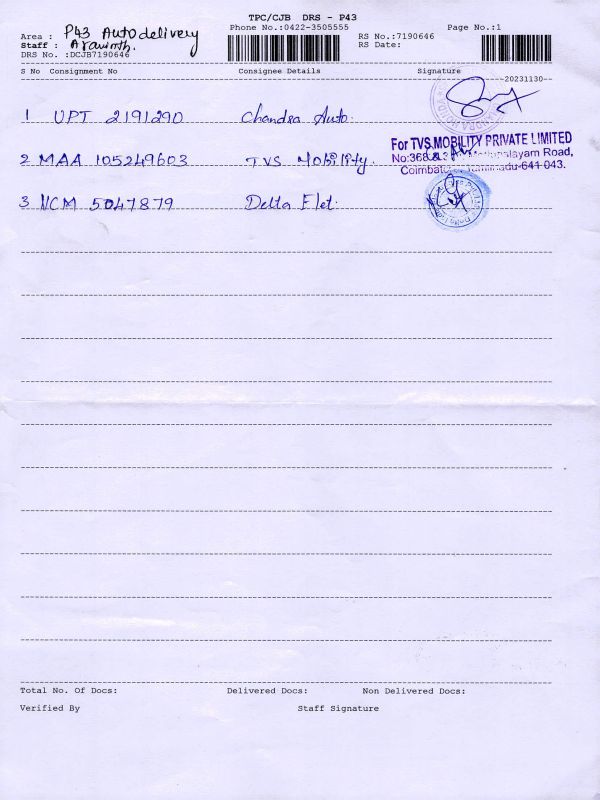 TPC/CJB DRS - P43
Area : P43 Auto delivery Phone No.:0422-3505555 RS No.:7190646 Page No.:1
Staff : Aravinth. RS Date:
DRS No. :DCJB7190646
S No Consignment No Consignee Details Signature
20231130
1 UPT 2191290 Chandra Auto.
2 MAA 105249603 TVS Mobility. For TVS MOBILITY PRIVATE LIMITED
No:368 Road,
Coimbatore Tamilnadu-641 043.
3 NCM 5047879 Delta Flet.
Total No. Of Docs: Delivered Docs: Non Delivered Docs:
Verified By Staff Signature